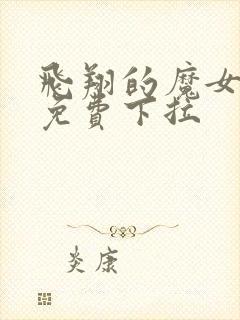 飛翔的魔女
免費下拉
炎康